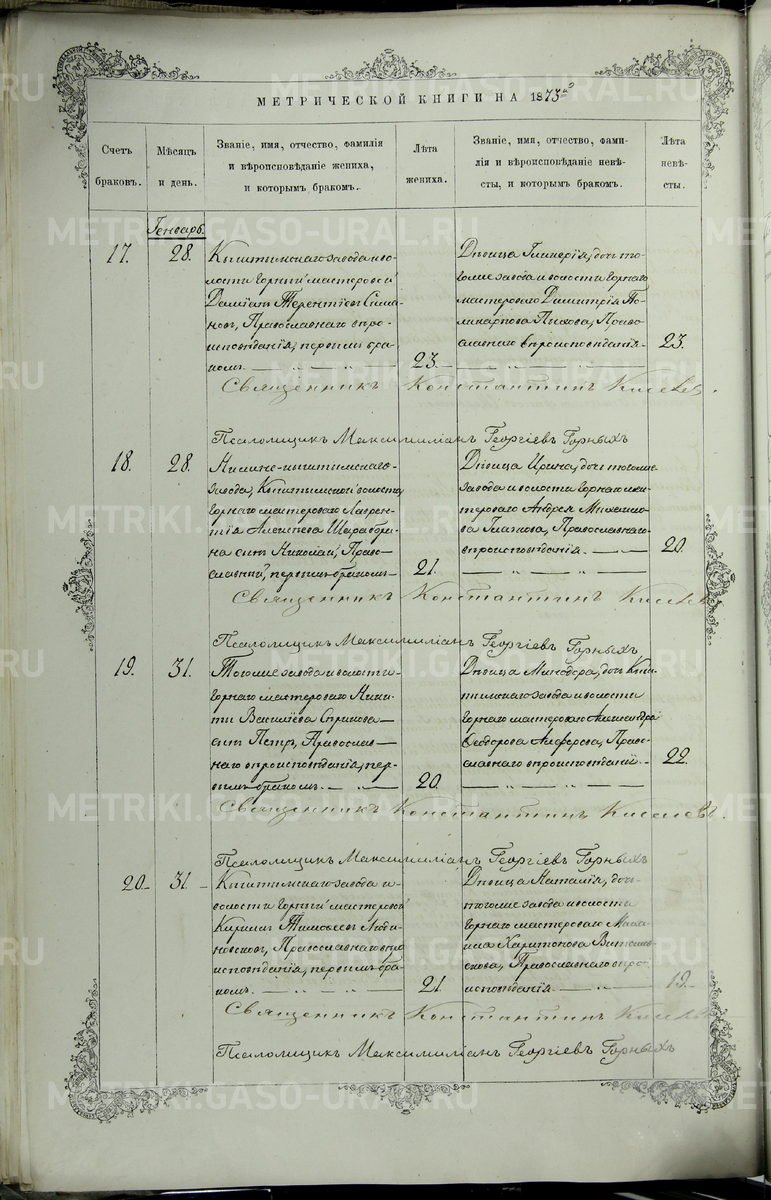 МЕТРИЧЕСКОЙ КНИГИ НА 1873й
Счетъ браковъ.
Мѣсяцъ и день.
Званіе, имя, отчество, фамилія
и вѣроисповѣданіе жениха,
и которымъ бракомъ.
Лѣта жениха.
Званіе, имя, отчество, фами-
лія и вѣроисповѣданіе невѣ-
сты, и которымъ бракомъ.
Лѣта невѣ-
сты.
Генварь.
17. 28.
Кыштымскаго завода и во-
лости горный мастеровой
Даміанъ Терентіевъ
Православнаго вѣро-
исповѣданія, первымъ бра-
комъ
23.
Дѣвица Гликерія, дочь то-
гоже завода и волости горнаго
мастероваго Димитрія По-
ликарпова Пыхова, Право-
славнаго вѣроисповѣданія
23.
Священникъ Константинъ Киселевъ.
Псаломщикъ Максимиліанъ Георгіевъ Горныхъ
18. 28.
Нижне-кыштымскаго
завода, Кыштымской волости,
горнаго мастероваго Лаврен-
тія Алексѣева
сынъ Николай, Право-
славный, первымъ бракомъ
21.
Дѣвица Ирина, дочь тогоже
завода и волости горнаго мас-
тероваго Андрея Михайло-
ва Глазкова, Православнаго
вѣроисповѣданія
20.
Священникъ Константинъ Киселевъ
Псаломщикъ Максимиліанъ Георгіевъ Горныхъ
19. 31.
Тогоже завода и волости
горнаго мастероваго Ники-
ты Василіева Сприкова
сынъ Петръ, Православ-
наго вѣроисповѣданія, пер-
вымъ бракомъ
20.
Дѣвица Минодора, дочь Кыш-
тымскаго завода и волости
горнаго мастероваго Александра
Ѳеодорова Алферова, Право-
славнаго вѣроисповѣданія
22.
Священникъ Константинъ Киселевъ.
Псаломщикъ Максимиліанъ Георгіевъ Горныхъ
20. 31.
Кыштымскаго завода и
волости горный мастеровой
Кириллъ Тимоѳеевъ Люби-
Православнаго вѣро-
исповѣданія, первымъ бра-
комъ
21.
Дѣвица Наталія, дочь
тогоже завода и волости
горнаго мастероваго Миха-
ила Харитонова
Православнаго вѣро-
исповѣданія
19.
Священникъ Константинъ Киселевъ
Псаломщикъ Максимиліанъ Георгіевъ Горныхъ
METRIKI.GASO-URAL.RU